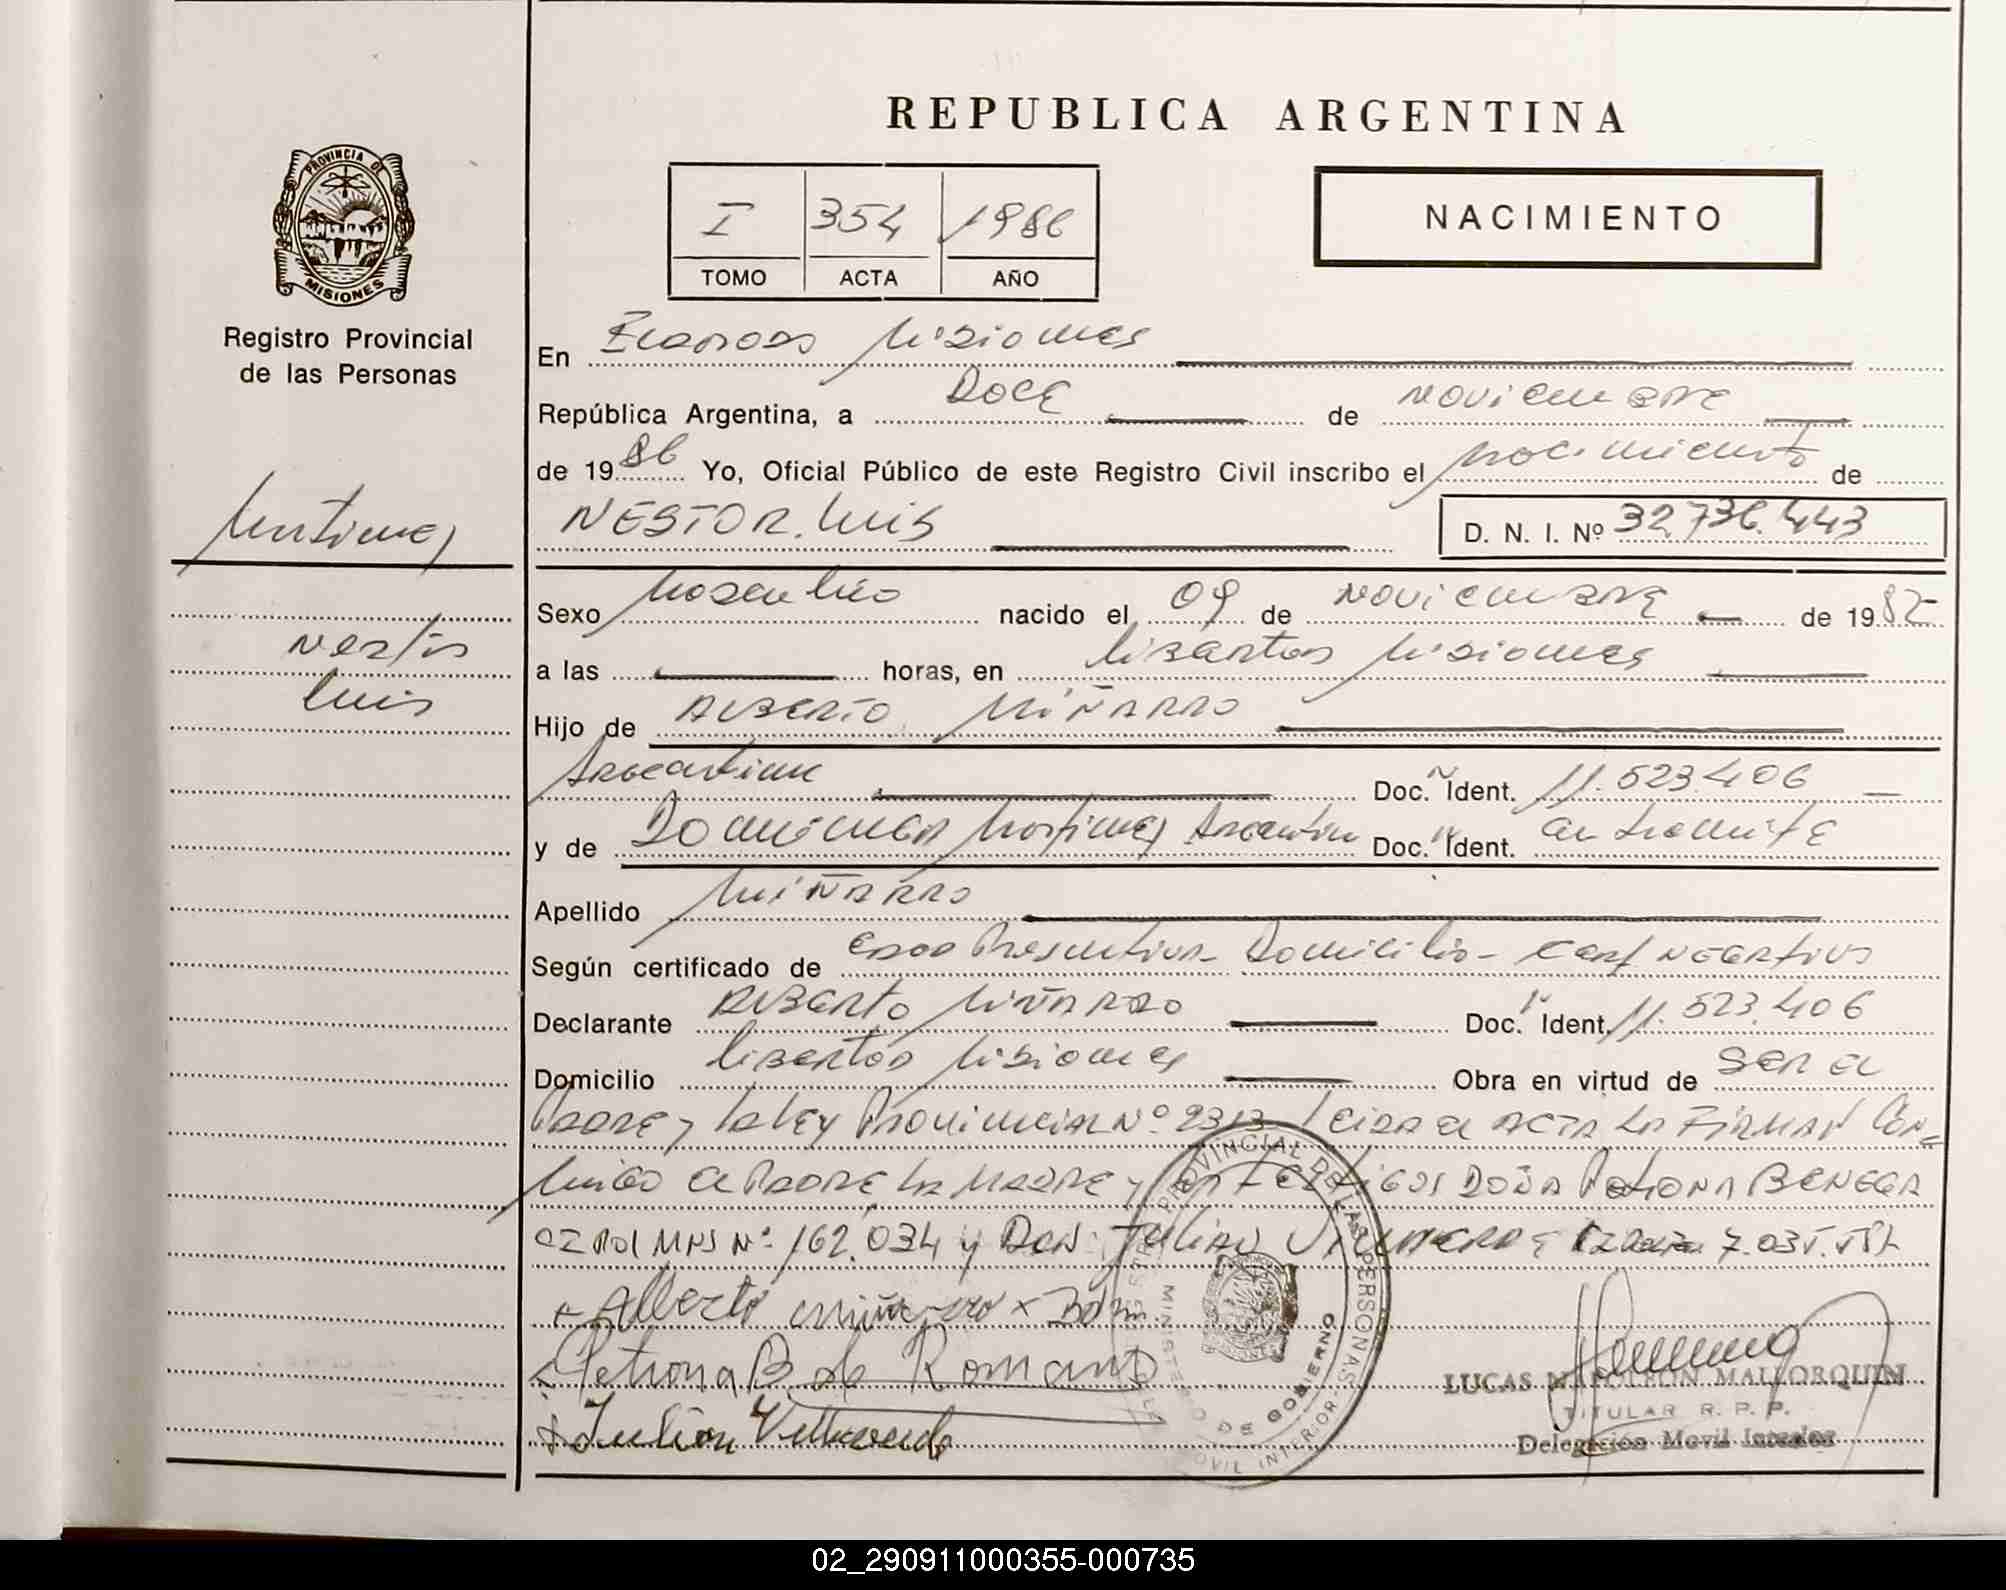 REPUBLICA ARGENTINA
PROVINCIA DE
MISIONES
Registro Provincial
de las Personas
I 354 1986
TOMO ACTA AÑO
NACIMIENTO
En Misiones
República Argentina, a Doce de Noviembre
de 1986 Yo, Oficial Público de este Registro Civil inscribo el nacimiento de
NESTOR LUIS D. N. I. Nº 32.736.443
Nestor
Luis
Sexo Masculino nacido el 09 de Noviembre de 1985
a las horas, en Libertad Misiones
Hijo de Alberto MIÑARRO
Argentina Doc. Ident. 11.523.406
y de Martinez Argentina Doc. Ident. en tramite
Apellido MIÑARRO
Según certificado de Edad Presuntiva - Domicilio - Cert Negativo
Declarante Alberto MIÑARRO Doc. Ident. 11.523.406
Domicilio Libertad Misiones Obra en virtud de SER EL
Padre y la Ley Provincial Nº 2313 Leida el ACTA LA FIRMAN CON-
migo el PADRE LA MADRE y los testigos DOÑA Petrona BENEGA
CI Pol MNS Nº 162.034 y Don Julian
Alberto miñarro
Petrona B de Romano
Julian
REGISTRO PROVINCIAL DE LAS PERSONAS
MINISTERIO DE GOBIERNO
MOVIL INTERIOR
LUCAS NAPOLEON MALLORQUIN
TITULAR R. P. P.
Delegación Movil Interior
02_290911000355-000735